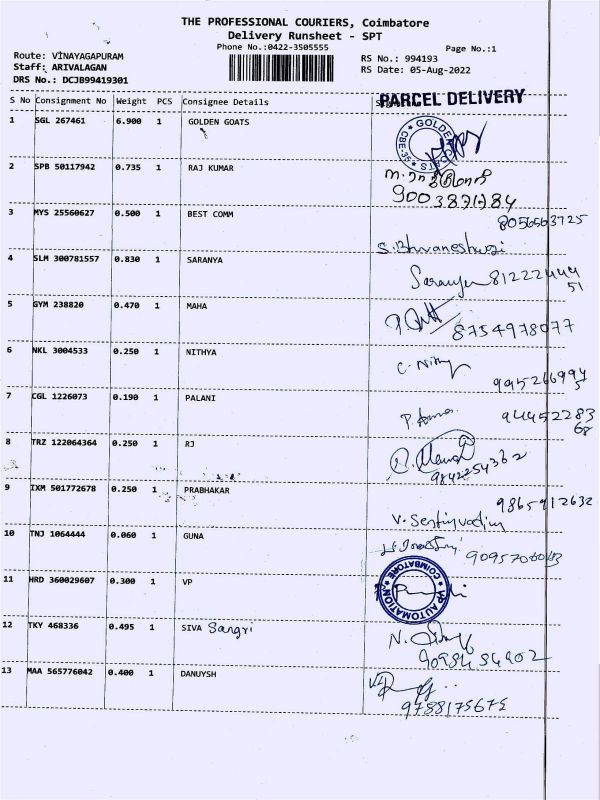 THE PROFESSIONAL COURIERS, Coimbatore
Delivery Runsheet - SPT
Phone No.:0422-3505555
Page No.:1
Route: VINAYAGAPURAM
RS No.: 994193
Staff: ARIVALAGAN
RS Date: 05-Aug-2022
DRS No.: DCJB99419301
PARCEL DELIVERY
S No Consignment No Weight PCS Consignee Details
1 SGL 267461 6.900 1 GOLDEN GOATS
2 SPB 50117942 0.735 1 RAJ KUMAR
3 MYS 25560627 0.500 1 BEST COMM
8056563725
S. Bhvaneshwari
4 SLM 300781557 0.830 1 SARANYA
Saranya 81222444
51
5 GYM 238820 0.470 1 MAHA
8754978077
6 NKL 3004533 0.250 1 NITHYA
C. Nithy
7 CGL 1226073 0.190 1 PALANI
94452283
68
8 TRZ 122064364 0.250 1 RJ
9842254362
9 IXM 501772678 0.250 1 PRABHAKAR
9865912632
10 TNJ 1064444 0.060 1 GUNA
11 HRD 360029607 0.300 1 VP
VP AUTOMATION COIMBATORE
12 TKY 468336 0.495 1 SIVA Sangri
13 MAA 565776042 0.400 1 DANUYSH
9788175675